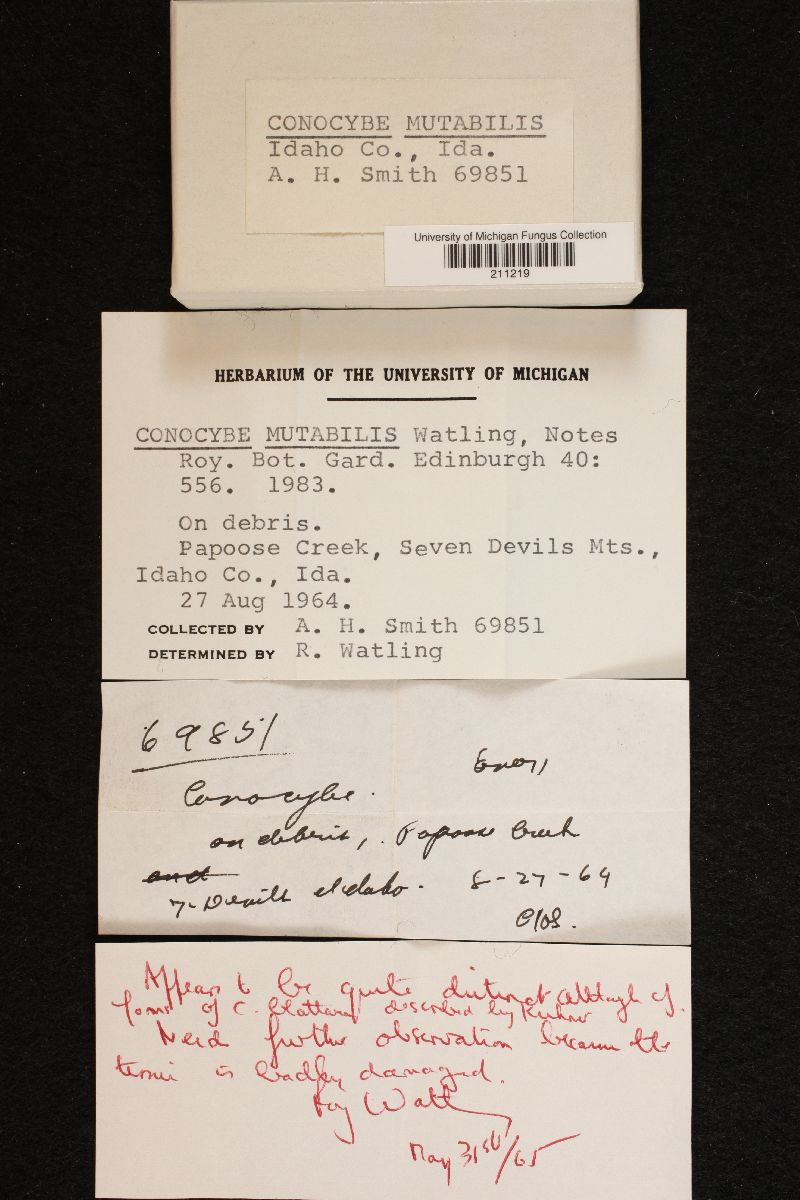 CONOCYBE MUTABILIS
Idaho Co., Ida.
A. H. Smith 69851
University of Michigan Fungus Collection
211219
HERBARIUM OF THE UNIVERSITY OF MICHIGAN
CONOCYBE MUTABILIS Watling, Notes
Roy. Bot. Gard. Edinburgh 40:
556. 1983.
On debris.
Papoose Creek, Seven Devils Mts.,
Idaho Co., Ida.
27 Aug 1964.
COLLECTED BY A. H. Smith 69851
DETERMINED BY R. Watling
69851
Conocybe.
on debris, Papoose Creek
and
7-Devills Idaho. 8-27-64
Appears to be quite distinct although cf.
form of C. blattaria described by Kuhner
Need further observation because the
is badly damaged.
Roy Watl
May 31st/65